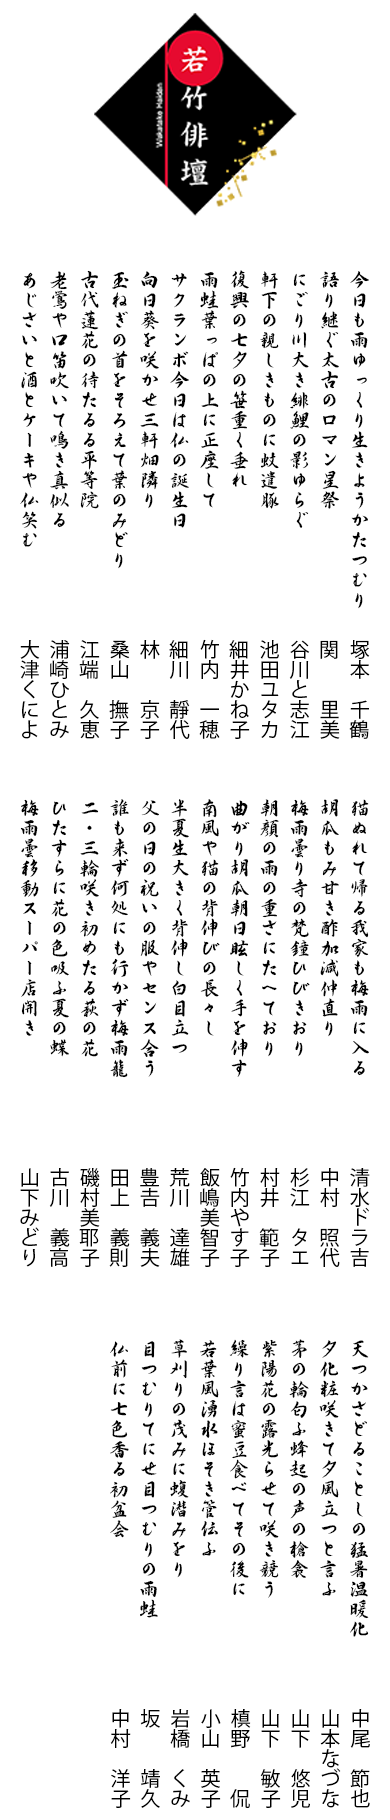 若竹俳壇
Wakatake Haidan
今日も雨ゆっくり生きようかたつむり
塚本 千鶴
語り継ぐ太古のロマン星祭
関 里美
にごり川大き緋鯉の影ゆらぐ
谷川と志江
軒下の親しきものに蚊遣豚
池田ユタカ
復興の七夕の笹重く垂れ
細井かね子
雨蛙葉っぱの上に正座して
竹内 一穂
サクランボ今日は仏の誕生日
細川 靜代
向日葵を咲かせ三軒畑隣り
林 京子
玉ねぎの首をそろえて葉のみどり
桑山 撫子
古代蓮花の待たるる平等院
江端 久恵
老鶯や口笛吹いて鳴き真似る
浦崎ひとみ
あじさいと酒とケーキや仏笑む
大津くによ
猫ぬれて帰る我家も梅雨に入る
清水ドラ吉
胡瓜もみ甘き酢加減仲直り
中村 照代
梅雨曇り寺の梵鐘ひびきおり
杉江 タエ
朝顔の雨の重さにたへており
村井 範子
曲がり胡瓜朝日眩しく手を伸す
竹内やす子
南風や猫の背伸びの長々し
飯嶋美智子
半夏生大きく背伸し白目立つ
荒川 達雄
父の日の祝いの服やセンス合う
豊𠮷 義夫
誰も来ず何処にも行かず梅雨籠
田上 義則
二・三輪咲き初めたる萩の花
磯村美耶子
ひたすらに花の色吸ふ夏の蝶
古川 義高
梅雨曇移動スーパー店開き
山下みどり
天つかさどることしの猛暑温暖化
中尾 節也
夕化粧咲きて夕風立つと言ふ
山本なづな
茅の輪匂ふ蜂起の声の槍衾
山下 悠児
紫陽花の露光らせて咲き競う
山下 敏子
繰り言は蜜豆食べてその後に
槙野 侃
若葉風湧水ほそき管伝ふ
小山 英子
草刈りの茂みに蝮潜みをり
岩橋 くみ
目つむりてにせ目つむりの雨蛙
坂 靖久
仏前に七色香る初盆会
中村 洋子